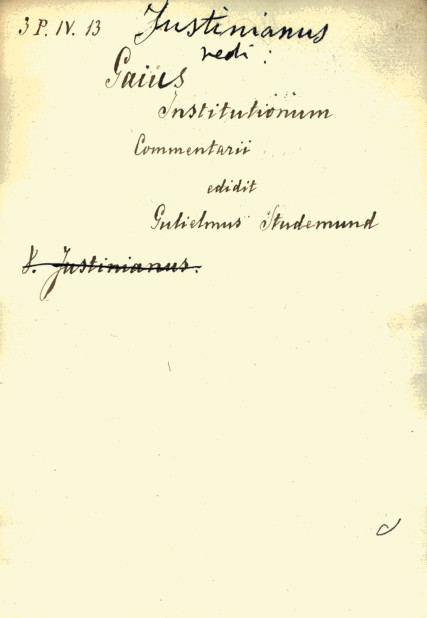 3 P. IV. 13 Justinianus
vedi:
Gaius
Institutionum
Commentarii
edidit
Gulielmus Studemund
V. Justinianus.